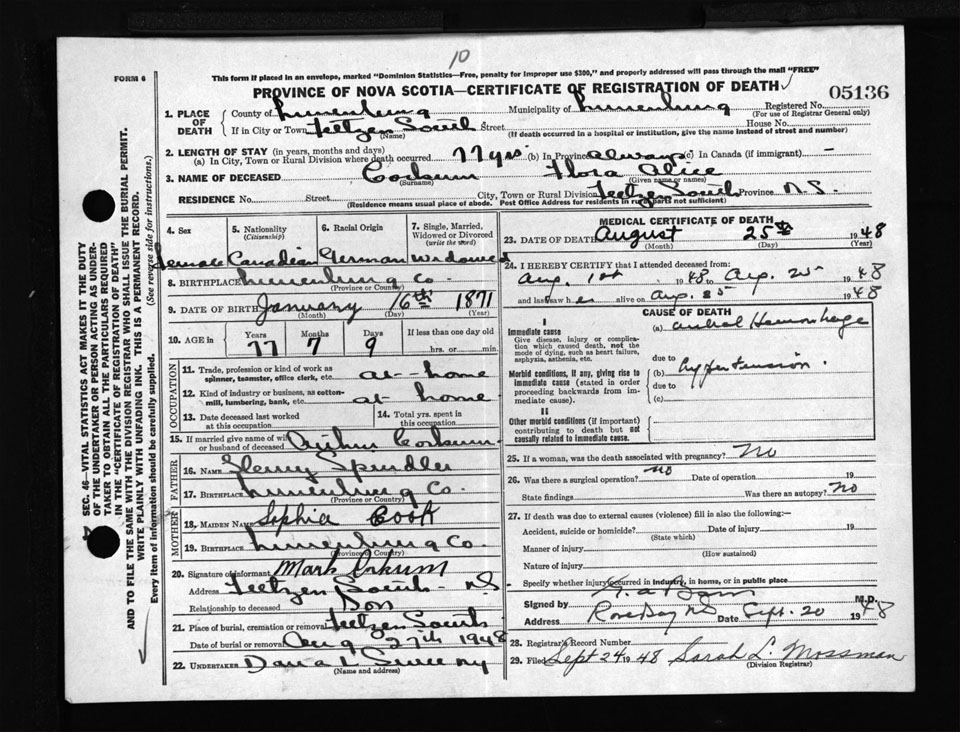 10
FORM 6
This form if placed in an envelope, marked "Dominion Statistics—Free, penalty for improper use $300," and properly addressed will pass through the mail "FREE"
PROVINCE OF NOVA SCOTIA—CERTIFICATE OF REGISTRATION OF DEATH
05136
1. PLACE OF DEATH
County of Lunenburg Municipality of Lunenburg Registered No.
(For use of Registrar General only)
If in City or Town Feltzen South Street House No.
(Name) (If death occurred in a hospital or institution, give the name instead of street and number)
2. LENGTH OF STAY (in years, months and days)
(a) In City, Town or Rural Division where death occurred 77 yrs (b) In Province always (c) In Canada (if immigrant) —
3. NAME OF DECEASED Corkum Flora Alice
(Surname) (Given name or names)
RESIDENCE No. Street City, Town or Rural Division Feltzen South Province N.S.
(Residence means usual place of abode. Post Office Address for residents in rural parts not sufficient)
4. Sex 5. Nationality (Citizenship) 6. Racial Origin 7. Single, Married, Widowed or Divorced (write the word)
Female Canadian German Widowed
8. BIRTHPLACE Lunenburg Co.
(Province or County)
9. DATE OF BIRTH January 16th 1871
(Month) (Day) (Year)
10. AGE in Years Months Days If less than one day old
77 7 9 hrs. or min.
OCCUPATION
11. Trade, profession or kind of work as spinner, teamster, office clerk, etc. at home
12. Kind of industry or business, as cotton-mill, lumbering, bank, etc. at home
13. Date deceased last worked at this occupation 14. Total yrs. spent in this occupation
15. If married give name of wife or husband of deceased Corkum
FATHER
16. NAME Henry Spindler
17. BIRTHPLACE Lunenburg Co.
(Province or County)
MOTHER
18. MAIDEN NAME Sophia Cook
19. BIRTHPLACE Lunenburg Co.
(Province or Country)
20. Signature of informant Mark Corkum
Address Feltzen South N.S.
Relationship to deceased Son
21. Place of burial, cremation or removal Feltzen South
Date of burial or removal Aug 27th 1948
22. UNDERTAKER Sweeny
(Name and address)
MEDICAL CERTIFICATE OF DEATH
23. DATE OF DEATH August 25th 1948
(Month) (Day) (Year)
24. I HEREBY CERTIFY that I attended deceased from:
Aug. 1st 1948 to Aug. 25 1948
and last saw her alive on Aug. 25 1948
CAUSE OF DEATH
I
Immediate cause
Give disease, injury or complication which caused death, not the mode of dying, such as heart failure, asphyxia, asthenia, etc.
(a) Hemorrhage
due to
Morbid conditions, if any, giving rise to immediate cause (stated in order proceeding backwards from immediate cause).
(b) Hypertension
due to
(c)
II
Other morbid conditions (if important) contributing to death but not causally related to immediate cause.
25. If a woman, was the death associated with pregnancy? No
26. Was there a surgical operation? No Date of operation 19
State findings Was there an autopsy? No
27. If death was due to external causes (violence) fill in also the following:—
Accident, suicide or homicide? Date of injury 19
(State which)
Manner of injury
(How sustained)
Nature of injury
Specify whether injury occurred in industry, in home, or in public place
Signed by M.D.
Address Rose Bay N.S. Date Sept. 20 1948
28. Registrar's Record Number
29. Filed Sept 24 1948 Sarah L. Mossman
(Division Registrar)
SEC. 46—VITAL STATISTICS ACT MAKES IT THE DUTY OF THE UNDERTAKER OR PERSON ACTING AS UNDERTAKER TO OBTAIN ALL THE PARTICULARS REQUIRED IN THE "CERTIFICATE OF REGISTRATION OF DEATH" AND TO FILE THE SAME WITH THE DIVISION REGISTRAR WHO SHALL ISSUE THE BURIAL PERMIT.
WRITE PLAINLY WITH UNFADING INK. THIS IS A PERMANENT RECORD.
Every item of information should be carefully supplied. (See reverse side for instructions.)